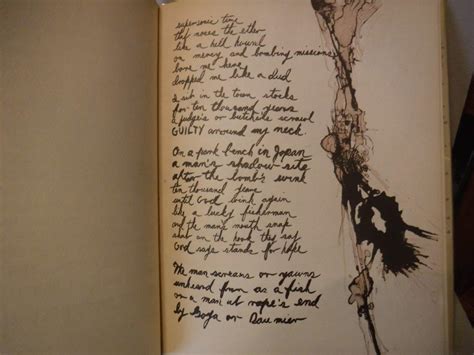 experience
they nose the ether
like a hell hound
on mercy and bombing missions
bore me here
dropped me like a dud
I sit in the town stocks
for ten thousand years
a judge's or butcher's scrawl
GUILTY around my neck
On a park bench in Japan
a man's shadow sits
after the bomb's wink
ten thousand years
until God wink again
like a lucky fisherman
and the man's mouth snap
shut on the hook they say
God says stands for hope
The man screams or yawns
unheard from as a fish
or a man at rope's end
by Goya or Daumier